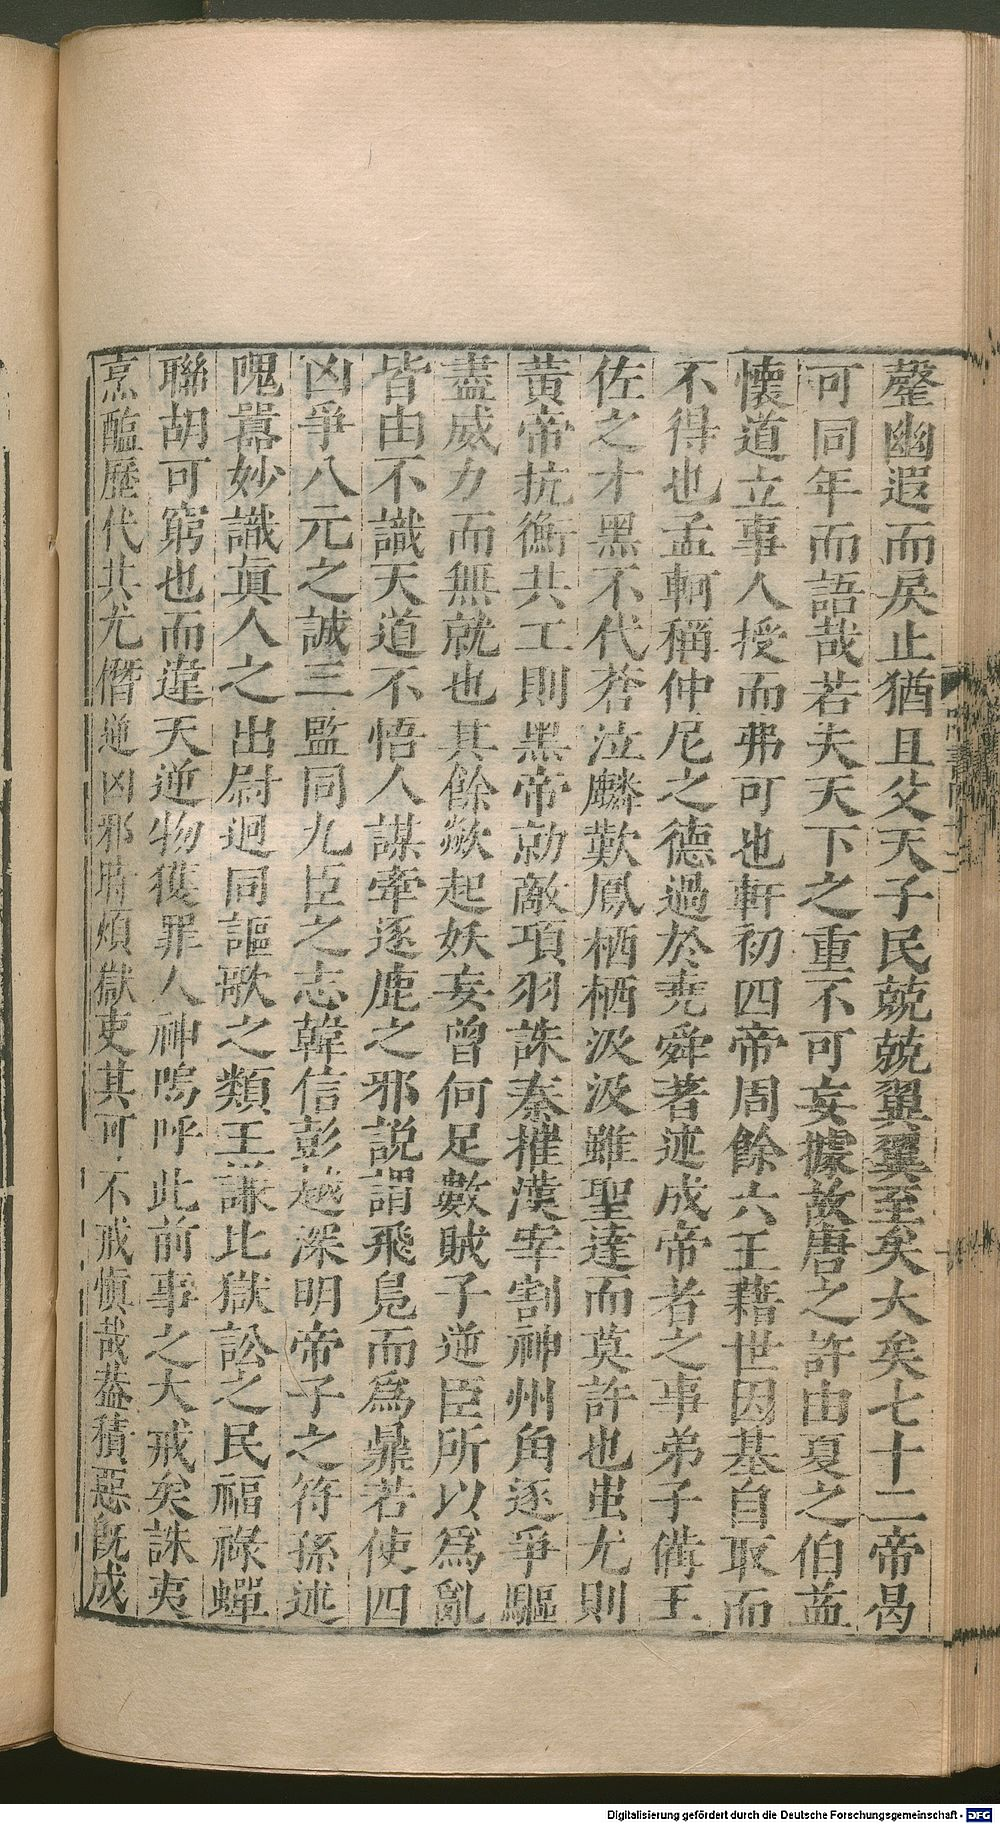 罄幽遐而戾止猶且父天子民兢兢翼翼至矣大矣七十二帝曷
可同年而語哉若夫天下之重不可妄據故唐之許由夏之伯益
懷道立事人授而弗可也軒初四帝周餘六王藉世因基自取而
不得也孟軻稱仲尼之德過於堯舜著述成帝者之事弟子備王
佐之才黑不代蒼泣麟歎鳳栖栖汲汲雖聖達而莫許也蚩尤則
黃帝抗衡共工則黑帝勍敵項羽誅秦摧漢宰割神州角逐爭驅
盡威力而無就也其餘歘起妖妄曾何足數賊子逆臣所以爲亂
皆由不識天道不悟人謀牽逐鹿之邪說謂飛鳧而爲鼎若使四
凶爭八元之誠三監同九臣之志韓信彭越深明帝子之符孫述
隗囂妙識眞人之出尉迥同謳歌之類王謙比獄訟之民福祿蟬
聯胡可窮也而違天逆物獲罪人神嗚呼此前事之大戒矣誅夷
烹醢歷代共尤僭逆凶邪時煩獄吏其可不戒愼哉葢積惡旣成
Digitalisierung gefördert durch die Deutsche Forschungsgemeinschaft - DFG